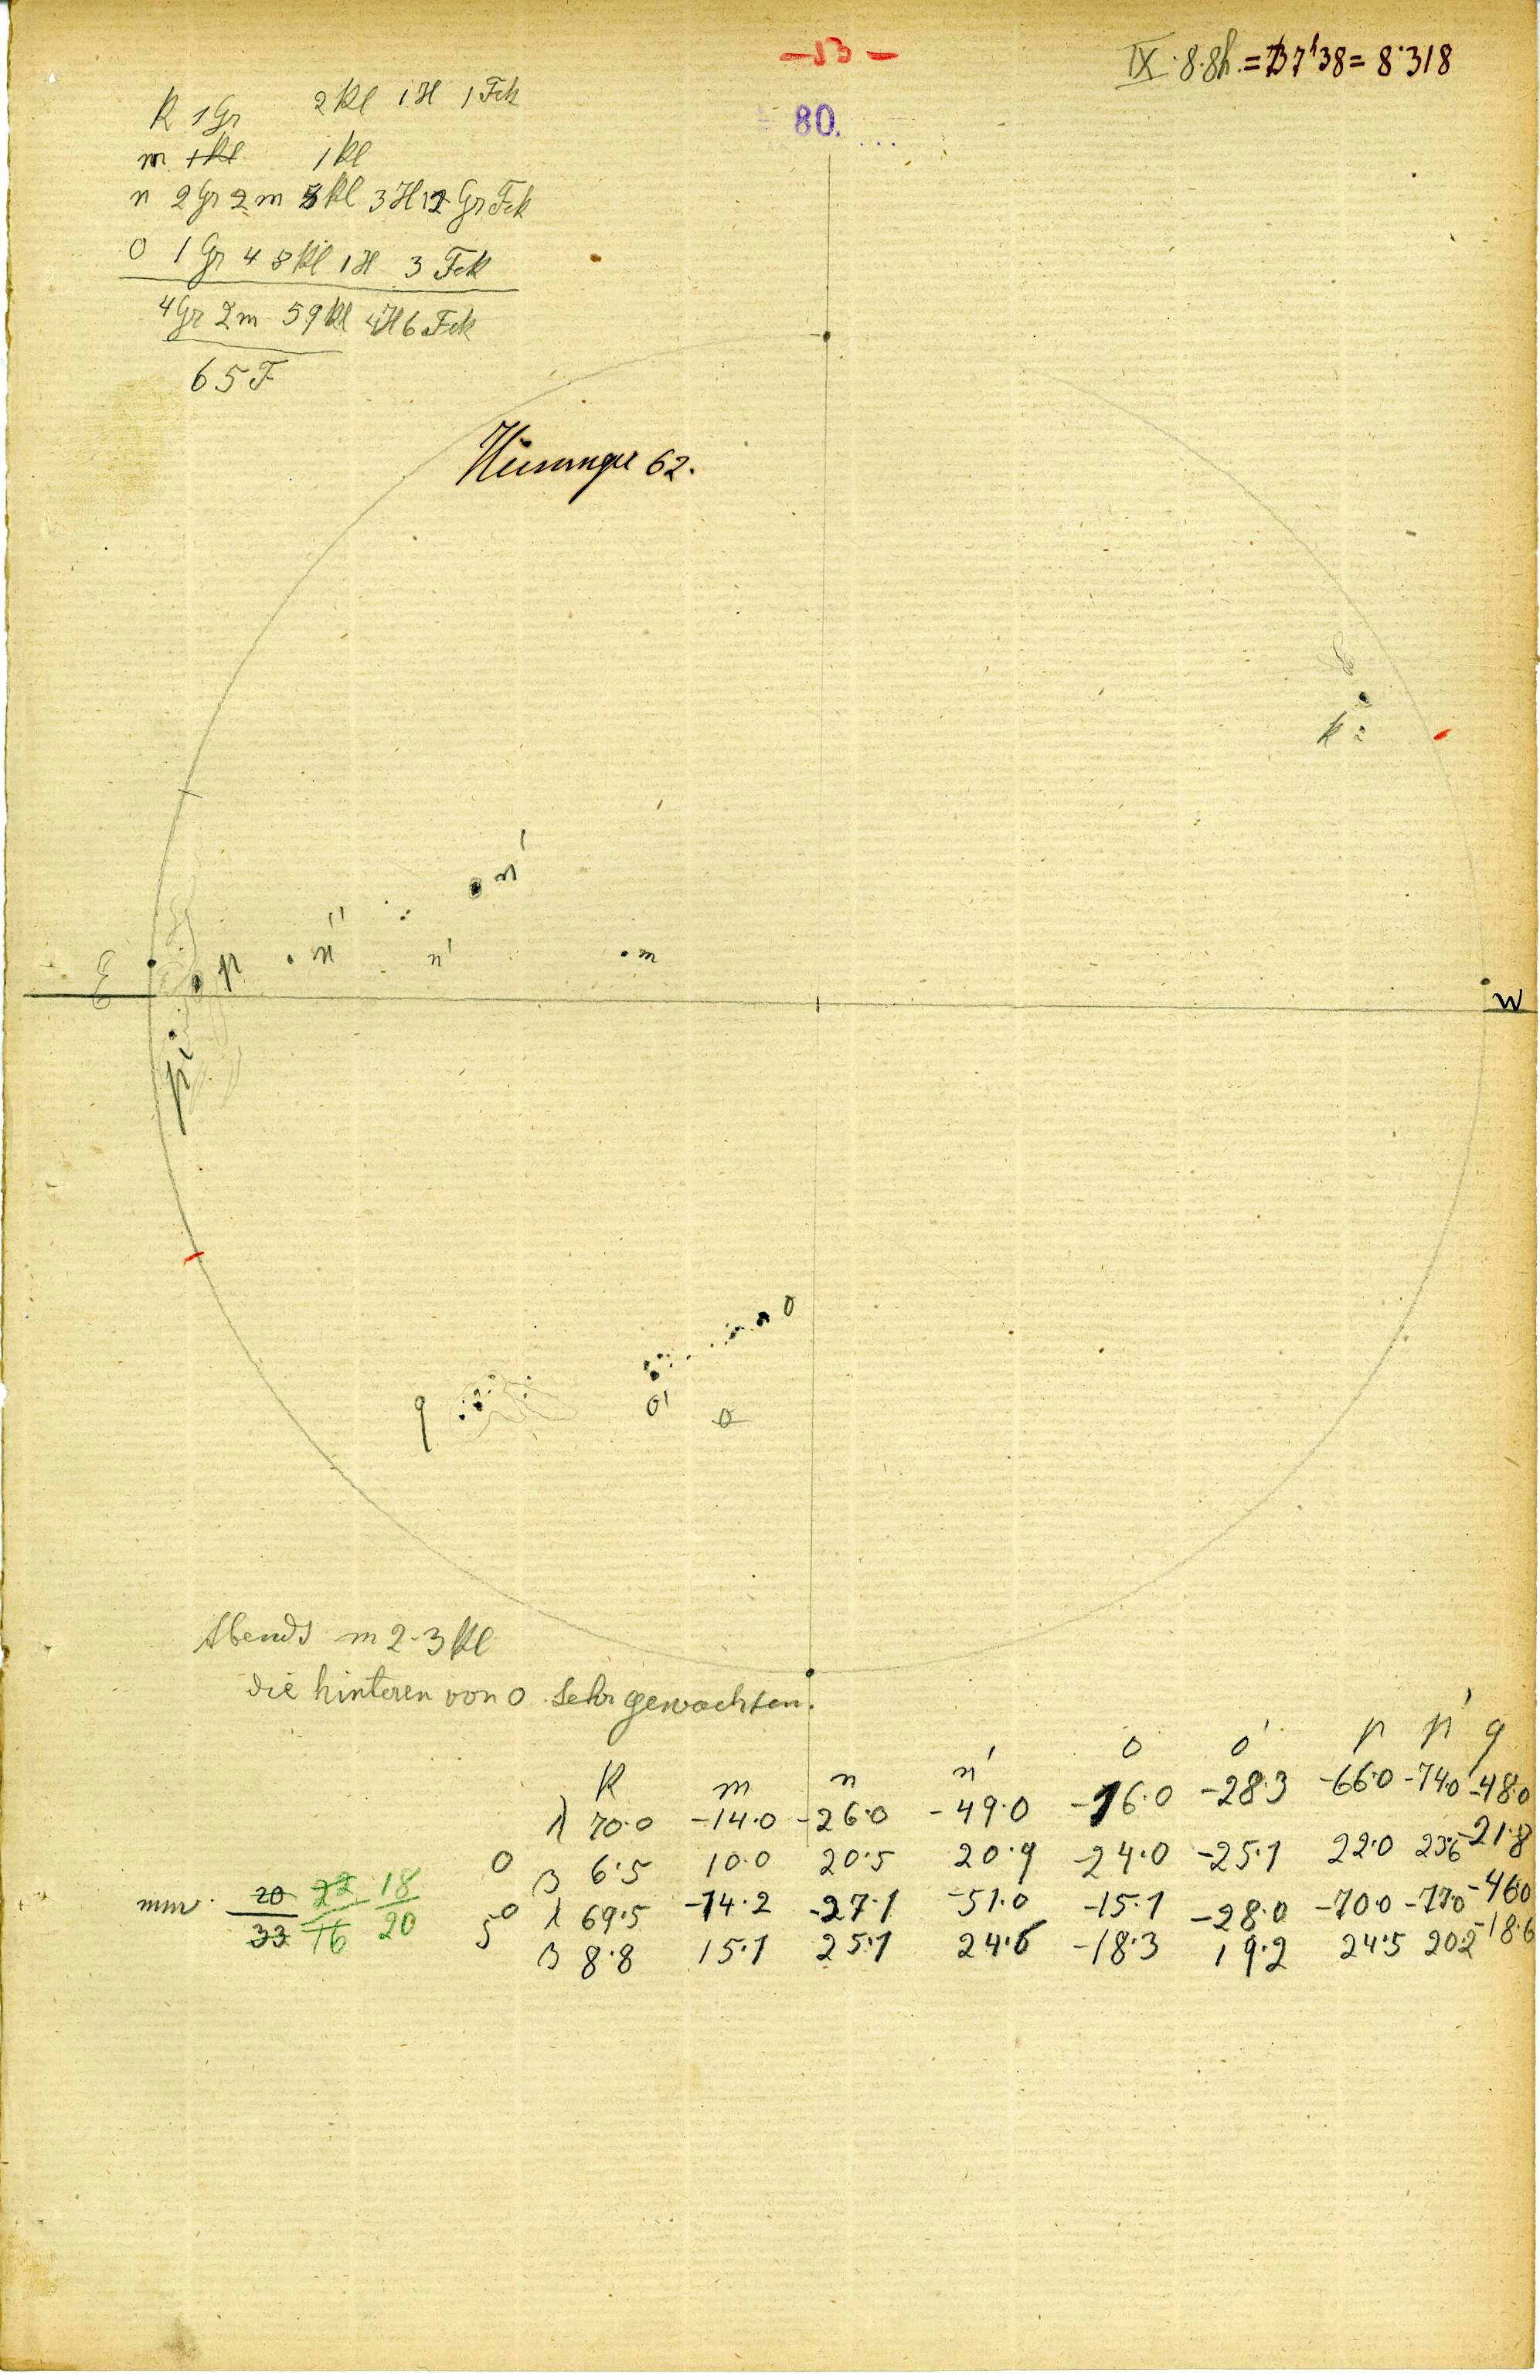 -13-
IX. 8. 8h. = 7'38 = 8.318
80.
k 1 Gr 2 kl 1 H 1 Fck
m 1 kl 1 kl
n 2 Gr 2 m 8 kl 3 H 2 Gr Fck
o 1 Gr 48 kl 1 H 3 Fck
4 Gr 2 m 59 kl 4 H 6 Fck
65 F
62.
k
n'
n''
n'
m
E
p
W
p'
o
q
o'
o
Abends m 2-3 kl
die hinteren von o sehr gewachsen.
k m n n' o o' p p' q
λ 70.0 -14.0 -26.0 -49.0 -16.0 -28.3 -66.0 -74.0 -48.0
0 β 6.5 10.0 20.5 20.9 -24.0 -25.1 22.0 23.6 -21.8
mm. 20/33 22/16 18/20
5° λ 69.5 -14.2 -27.1 -51.0 -15.1 -28.0 -70.0 -77.0 -46.0
β 8.8 15.1 25.1 24.6 -18.3 19.2 24.5 20.2 -18.6